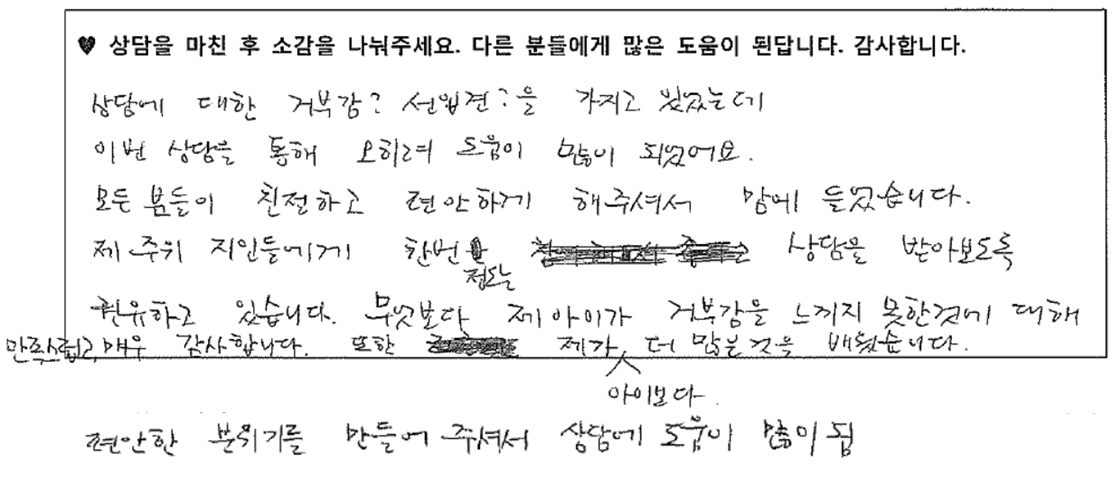 ♥ 상담을 마친 후 소감을 나눠주세요. 다른 분들에게 많은 도움이 된답니다. 감사합니다.
상담에 대한 거부감? 선입견?을 가지고 있었는데
이번 상담을 통해 오히려 도움이 많이 되었어요.
모든 분들이 친절하고 편안하게 해주셔서 맘에 들었습니다.
제 주위 지인들에게 한번 정도는 상담을 받아보도록
권유하고 있습니다. 무엇보다 제 아이가 거부감을 느끼지 못한것에 대해
만족스럽고, 매우 감사합니다. 또한 제가 더 많은 것을 배웠습니다.
아이보다
편안한 분위기를 만들어 주셔서 상담에 도움이 많이 됨